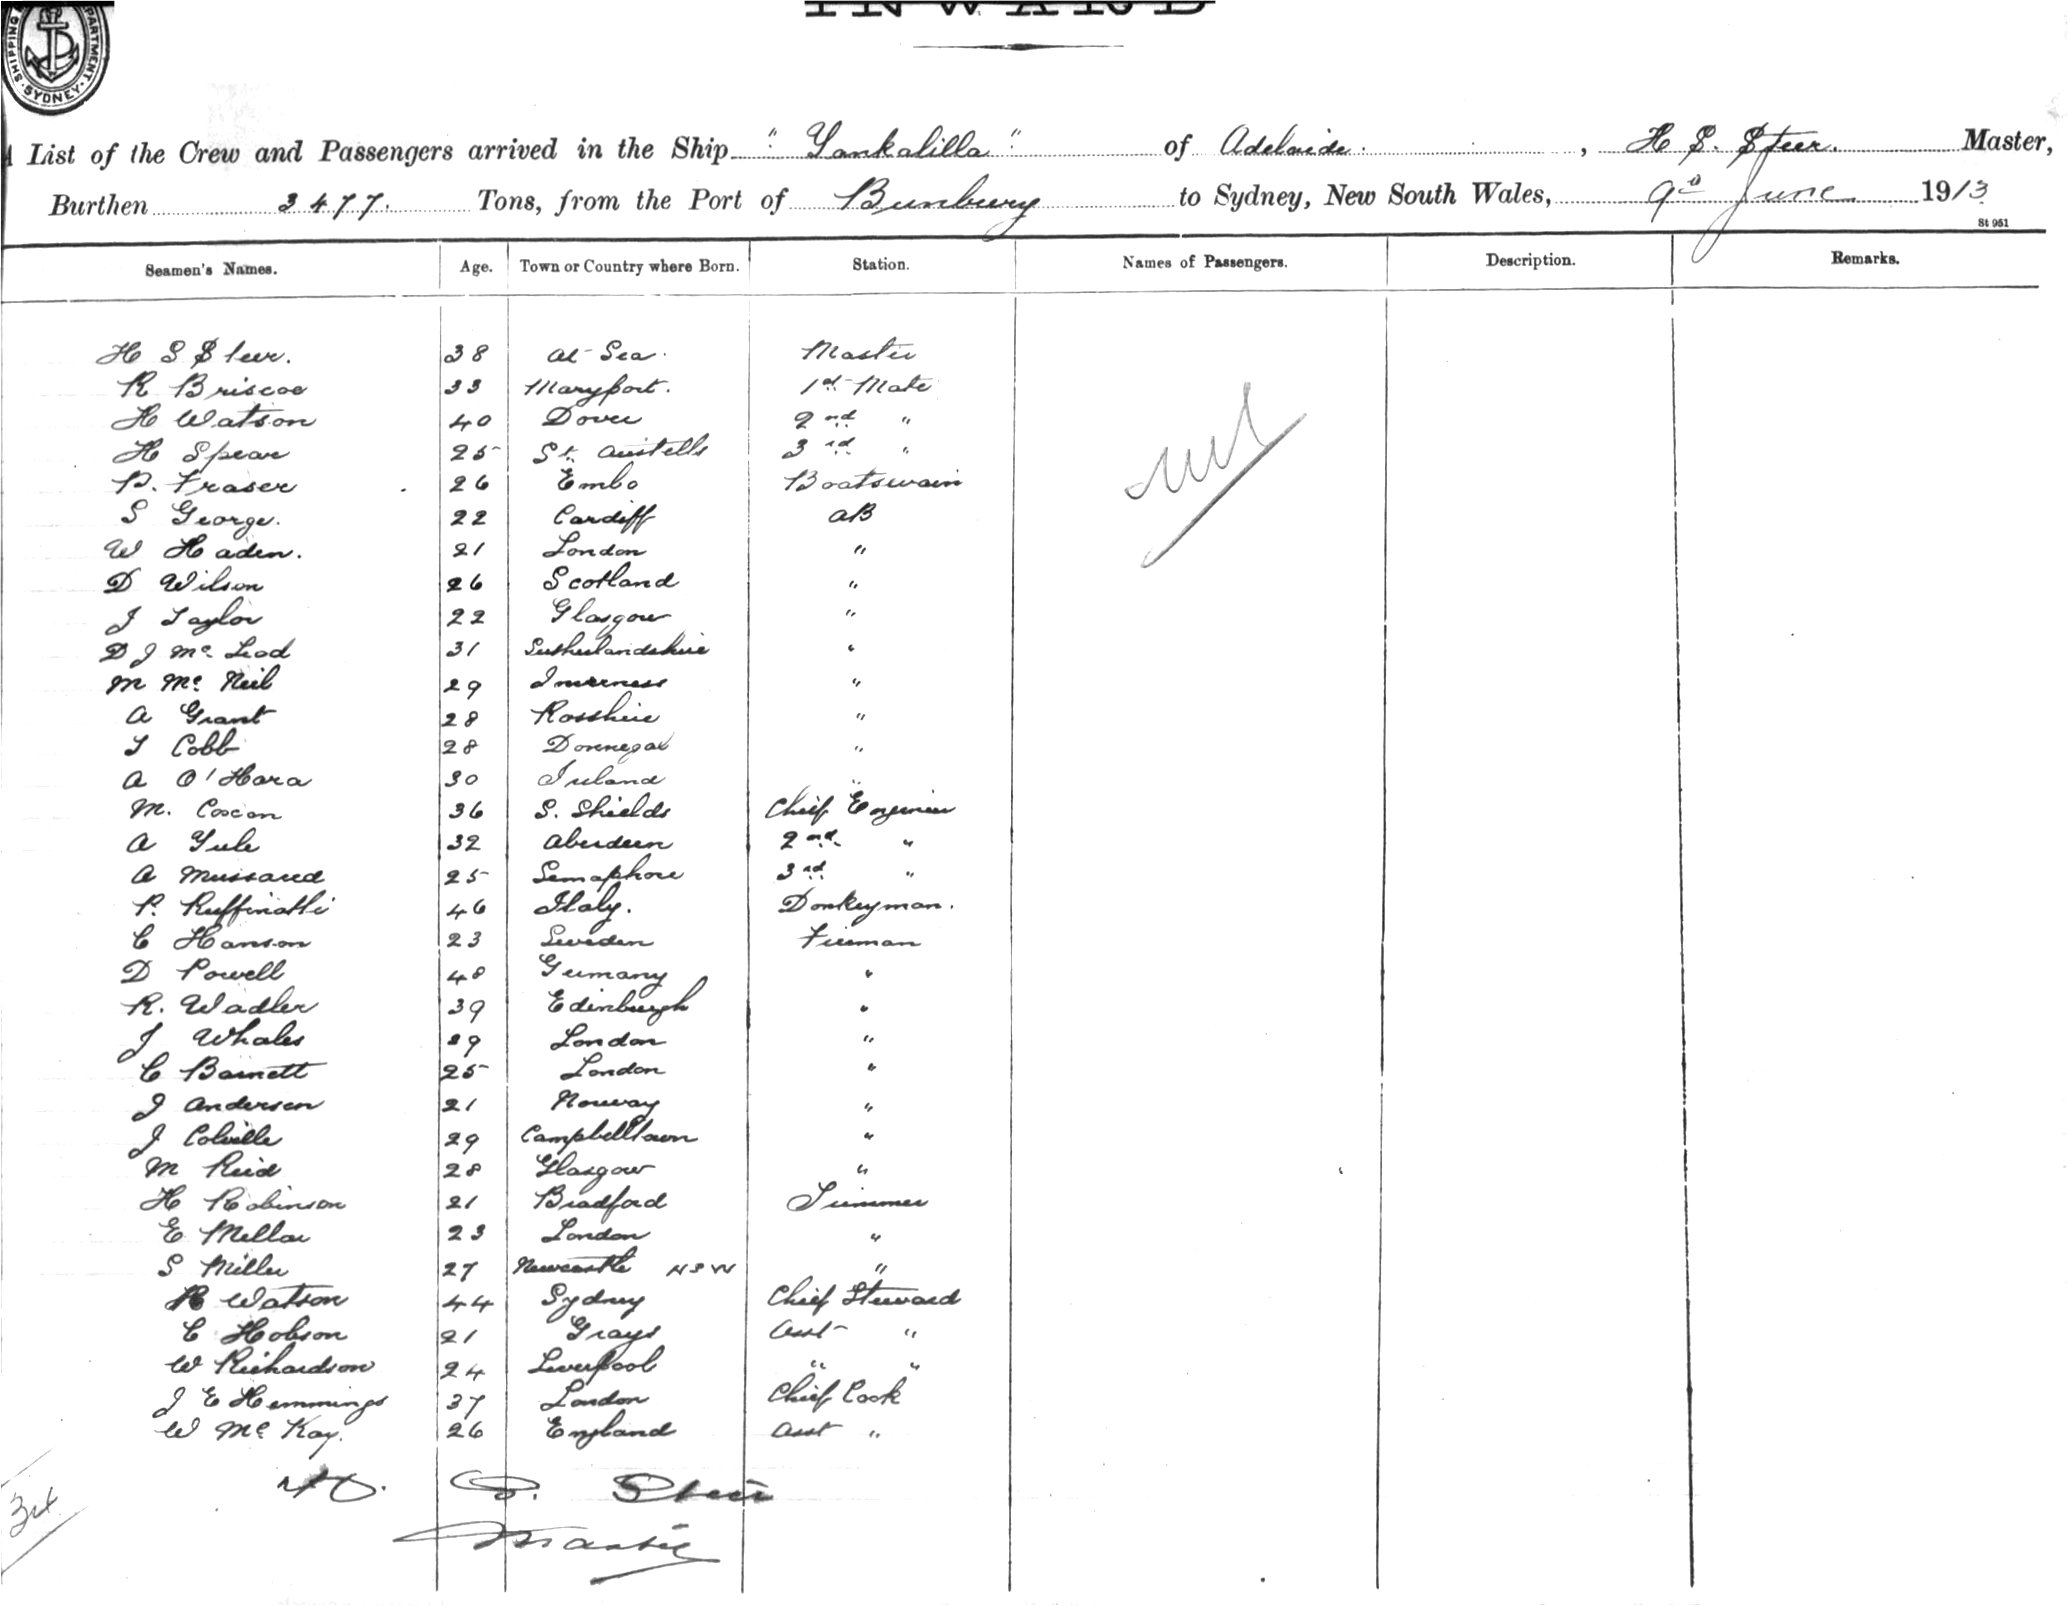 INWARD
SHIPPING DEPARTMENT. SYDNEY.
A List of the Crew and Passengers arrived in the Ship "Yankalilla" of Adelaide, H S. Steer. Master,
Burthen 3477. Tons, from the Port of Bunbury to Sydney, New South Wales, 9th June 1913
St 951
Seamen's Names. Age. Town or Country where Born. Station. Names of Passengers. Description. Remarks.
H S Steer. 38 At Sea. Master
R Briscoe 33 Maryport. 1st Mate
H Watson 40 Dover 2nd "
H Spear 25 St. Austells 3rd "
P. Fraser 26 Embo Boatswain
S George. 22 Cardiff AB
W Haden. 21 London "
D Wilson 26 Scotland "
J Taylor 22 Glasgow "
D J Mc Leod 31 Sutherlandshire "
M Mc Neil 29 Inverness "
A Grant 28 Rosshire "
T Cobb 28 Donnegal "
A O'Hara 30 Ireland "
M. Coxon 36 S. Shields Chief Engineer
A Yule 32 Aberdeen 2nd "
A Mussared 25 Semaphore 3rd "
P. Ruffinatti 46 Italy. Donkeyman.
C Hanson 23 Sweden Fireman
D Powell 48 Germany "
R. Wadler 39 Edinburgh "
J Whales 29 London "
C Barnett 25 London "
J Andersen 21 Norway "
J Colville 29 Campbelltown "
M Reid 28 Glasgow "
H Robinson 21 Bradford Trimmer
E Mellor 23 London "
S Miller 27 Newcastle NSW "
R Watson 44 Sydney Chief Steward
C Hobson 21 Grays Asst "
W Richardson 24 Liverpool " "
J E Hemmings 37 London Chief Cook
W Mc Kay. 26 England Asst "
Nil
H. S. Steer
Master
34